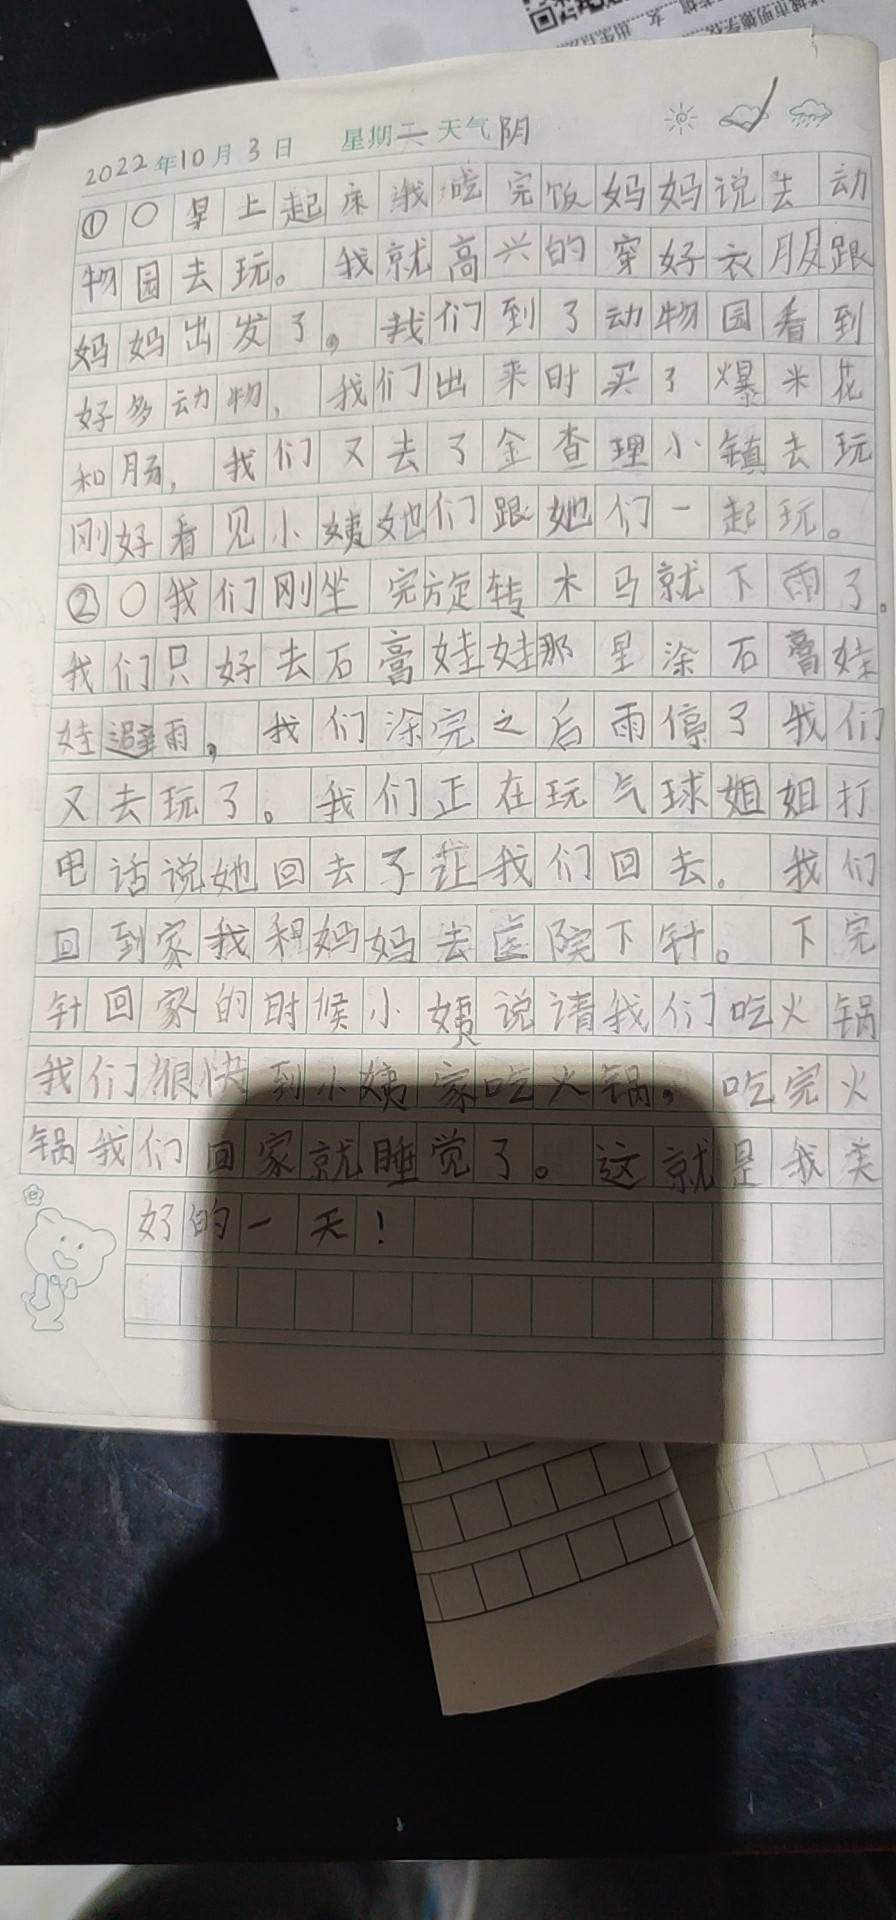 2022年10月3日 星期二 天气阴
①〇早上起床我吃完饭妈妈说去动
物园去玩。我就高兴的穿好衣服跟
妈妈出发了。我们到了动物园看到
好多动物，我们出来时买了爆米花
和肠，我们又去了金查理小镇去玩
刚好看见小姨她们跟她们一起玩。
②〇我们刚坐完旋转木马就下雨了。
我们只好去石膏娃娃那里涂石膏娃
娃避雨，我们涂完之后雨停了我们
又去玩了。我们正在玩气球姐姐打
电话说她回去了让我们回去。我们
回到家我和妈妈去医院下针。下完
针回家的时候小姨说请我们吃火锅
我们很快到小姨家吃火锅，吃完火
锅我们回家就睡觉了。这就是我美
好的一天！